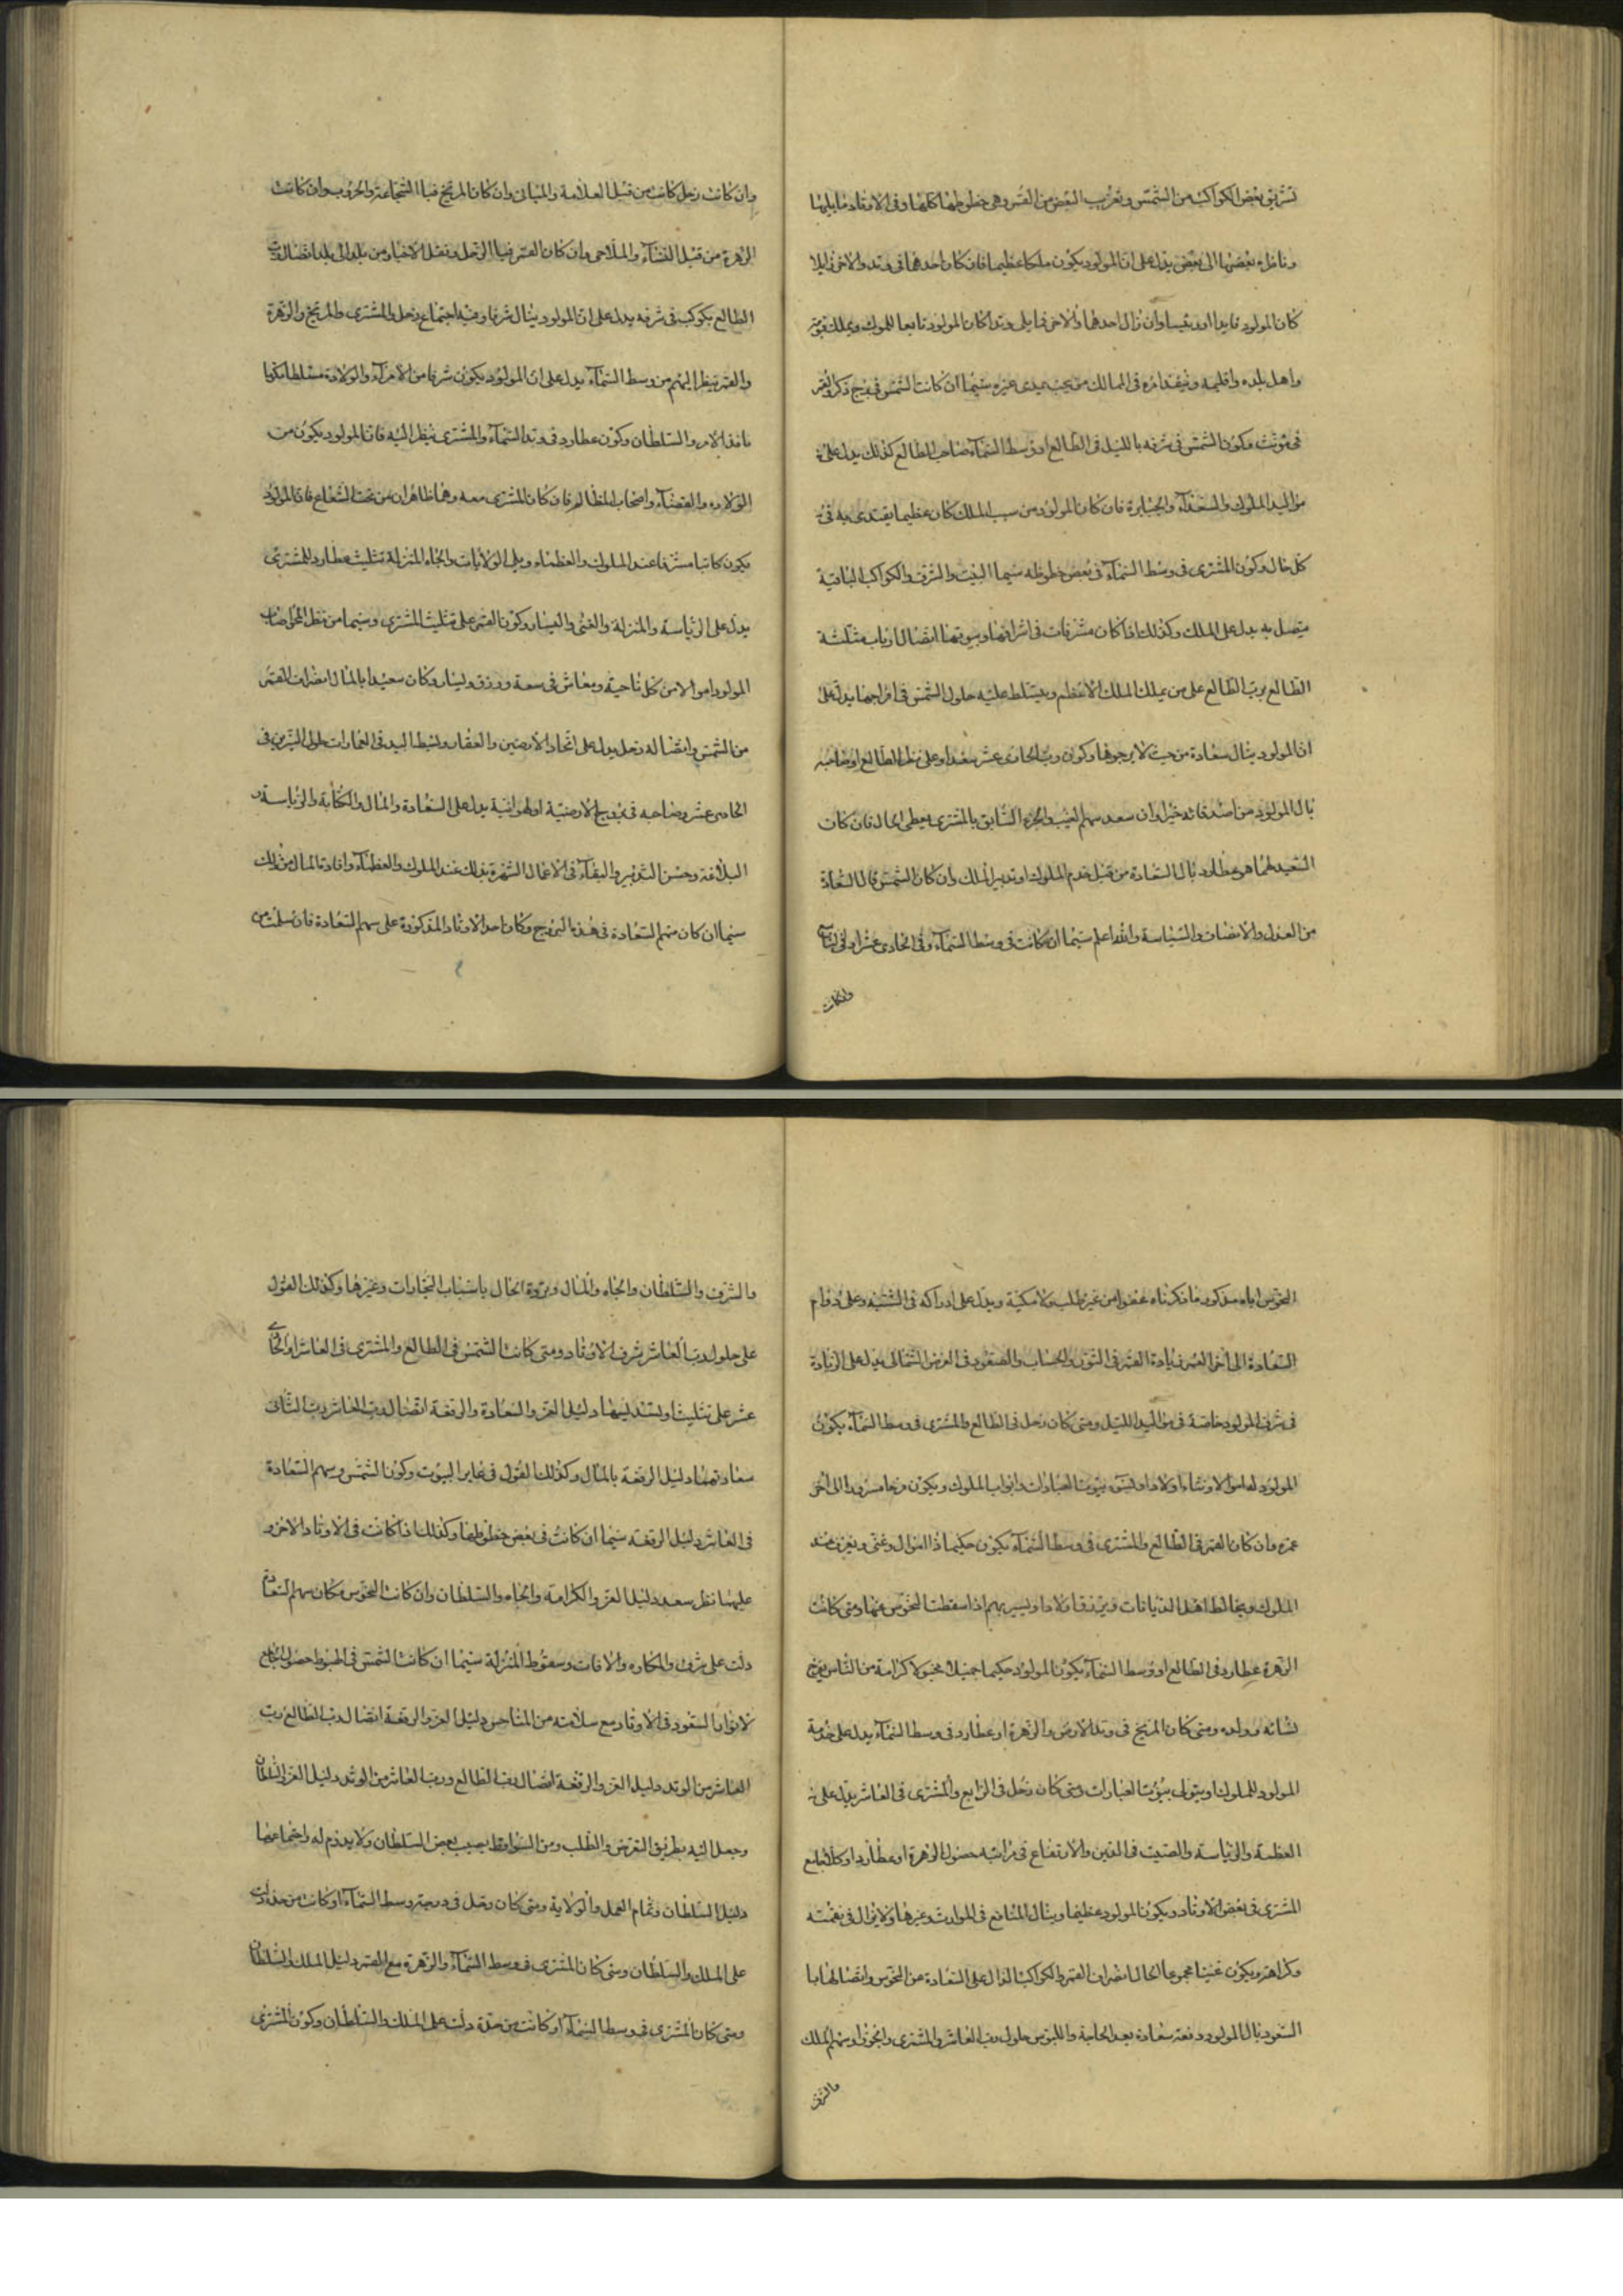 تشريق بعض الكواكب من الشمس وتغريب البعض من القمر وهي حظوظها كلها وفي الاوتاد مايليها
وناظره بعضها الى بعض يدل على ان المولود يكون ملكا عظيما فان كان احدهما في وتد والاخر زايلا
كان المولود قايدا اورئيسا وان زال احدهما والاخر فيما يلي وتدا كان المولود تابعا للملوك ويملك قوته
واهل بلده واقليمه وينفذ امره في الممالك من تحت يدي غيره سيما ان كانت الشمس في برج ذكر والقمر
في مؤنث وكون الشمس في شرفه بالليل في الطالع او وسط السماء صاحب الطالع كذلك يدل على
مواليد الملوك والسعداء والجبابرة فان كان المولود من سبب الملك كان عظيما يقتدى به في
كل حال وكون المشترى في وسط السماء في بعض حظوظه سيما البيت والشرف والكواكب الباقية
يتصل به يدل على الملك وكذلك اذا كان مشرفات في اشرافها وبيوتها اتصال ارباب مثلثة
الطالع برب الطالع على من يملك الملك الاعظم ويتسلط عليه حلول الشمس في افراحها يدل على
ان المولود ينال سعادة من حيث لا يرجوها وكون رب الحادى عشر سعدا وعلى نظر الطالع اوصاحبه
نال المولود من اصدقائه خيرا وان سعد سهم الغيب والجزء السابق بالمشترى يعطى الحال فان كان
السعيد لهما هو عطارد نال السعادة من قبل خدم الملوك او تدبير الملك وان كان الشمس نال السعادة
من العدل والانصاف والسياسة والله اعلم سيما ان كانت في وسط السماء وفي الحادى عشر او في التاسع
وان كانت
وان كانت زحل كانت من قبل العلامة والمباني وان كان المريخ فبا الشجاعة والحروب وان كانت
الزهرة من قبل النساء والملاحى وان كان القمر فبا الرحل ونقل الاخبار من بلد الى بلد اتصال رب
الطالع بكوكب في شرفه يدل على ان المولود ينال شرفا وفيه اجتماع زحل والمشترى والمريخ والزهرة
والقمر ينظر اليهم من وسط السماء يدل على ان المولود يكون شرفا من الامراء والولاة متسلطا مكونا
نافذ الامر والسلطان وكون عطارد في وتد السماء والمشترى ينظر اليه فان المولود يكون من
الولاده والقضاء واصحاب المظالم فان كان المشترى معه وهما ظاهران من تحت الشعاع فان المولود
يكون كاتبا مشرفا عند الملوك والعظماء ويلى الولايات والجاه المنزلة تثليث عطارد للمشترى
يدل على الرياسة والمنزلة والغنى واليسار وكون القمر على تثليث المشترى وسيما من نظر
المولود اموالا من كل ناحية ومعاش في سعة ورزق وليسار وكان سعيدا بالمال انصراف القمر
من الشمس واتصاله زحل يدل على اتخاذ الارضين والعقار وبسط اليد في العمارات حلول النيرين في
الحادى عشر وصاحبه في بروج الارضية او الهوائية يدل على السعادة والمال والكتابة والرياسة و
البلاغة وحسن التدبير والبقاء في الاعمال الشهرة بذلك عند الملوك والعظماء وافادة المال من ذلك
سيما ان كان سهم السعادة في هذه البروج وكان احد الاوتاد المذكورة على سهم السعادة فان سلمت من
النحوس اياه مذكور ماذكرناه عفوا من غير طلب ولا مكية ويدل على ادراكه في الشبيبة وعلى دوام
السعادة الى اخر العمر زيادة القمر في النور والحساب والصعود في العرض الشمالى يدل على الزيادة
في شرف المولود خاصة في مواليد الليل ومتى كان زحل في الطالع والمشترى في وسط السماء يكون
المولود له اموالا ونساء واولادا وليسوء بيوت العبادات وابواب الملوك ويكون فرحا مسرورا الى اخر
عمره وان كان القمر في الطالع والمشترى في وسط السماء يكون حكيما ذا اموال وغنى ويعرف عند
الملوك ويخالط اهل الديانات ويرزق اولادا ويسر بهم اذا سقطت النحوس عنها ومتى كانت
الزهرة عطارد في الطالع او وسط السماء يكون المولود حكيما جميلا محبوبا كرامة من الناس يفرح
لشانه وولده ومتى كان المريخ في وتد الارض والزهرة او عطارد في وسط السماء يدل على خدمة
المولود للملوك او يتولى بيوت العبادات ومتى كان زحل في الرابع والمشترى في العاشر يدل على
العظمة والرياسة والصيت في الدين والارتفاع في مراتبه حصول الزهرة او عطارد او كلاهما مع
المشترى في بعض الاوتاد ويكون المولود عظيما وينال المنافع في المواريث وغيرها ولايزال في نعمته
وكراهته ويكون غنيا مجموعا الحال انصراف القمر والكواكب الدال على السعادة عن النحوس واتصالها با
السعود نال المولود دفعة سعادة بعد الحاجة والبؤس حلول رب العاشر والمشترى والجوزا وسهم الملك
والشرف
والشرف والسلطان والجاه والمال وثروة الحال باسباب التجارات وغيرها وكذلك القول
على حلول رب العاشر شرف الاوتاد ومتى كانت الشمس في الطالع والمشترى في العاشر او الحادى
عشر على تثليثها وتسديسها دليل العز والسعادة والرفعة اتصال رب العاشر برب الثانى
سعادتهما دليل الرفعة بالمال وكذلك القول في غاير البيوت وكون الشمس وسهم السعادة
في العاشر دليل الرفعة سيما ان كانت في بعض حظوظها وكذلك اذا كانت في الاوتاد الاخر و
عليها نظر سعد دليل العز والكرامة والجاه والسلطان وان كانت النحوس مكان سهم السعادة
دلت على شرف والمكاره والافات وسقوط المنزلة سيما ان كانت الشمس في الهبوط حصول
السعود في الاوتاد مع سلامته من المناحس دليل العز والرفعة اتصال رب الطالع رب
العاشر من الوتد دليل العز والرفعة اتصال رب الطالع ورب العاشر من الوتد دليل العز والسلطان
وجعل اليه بطريق التعرض والطلب ومن السواقط يصيب بعض السلطان ولا يدوم له واجتماعهما
دليل السلطان وتمام العمل والولاية ومتى كان زحل في درجة وسط السماء او كانت من حده دلت
على الملك والسلطان ومتى كان المشترى في وسط السماء والزهرة مع القمر دليل الملك والسلطان
ومتى كان المشترى في وسط السماء او كانت من حدة دلت على الملك والسلطان وكون المشترى